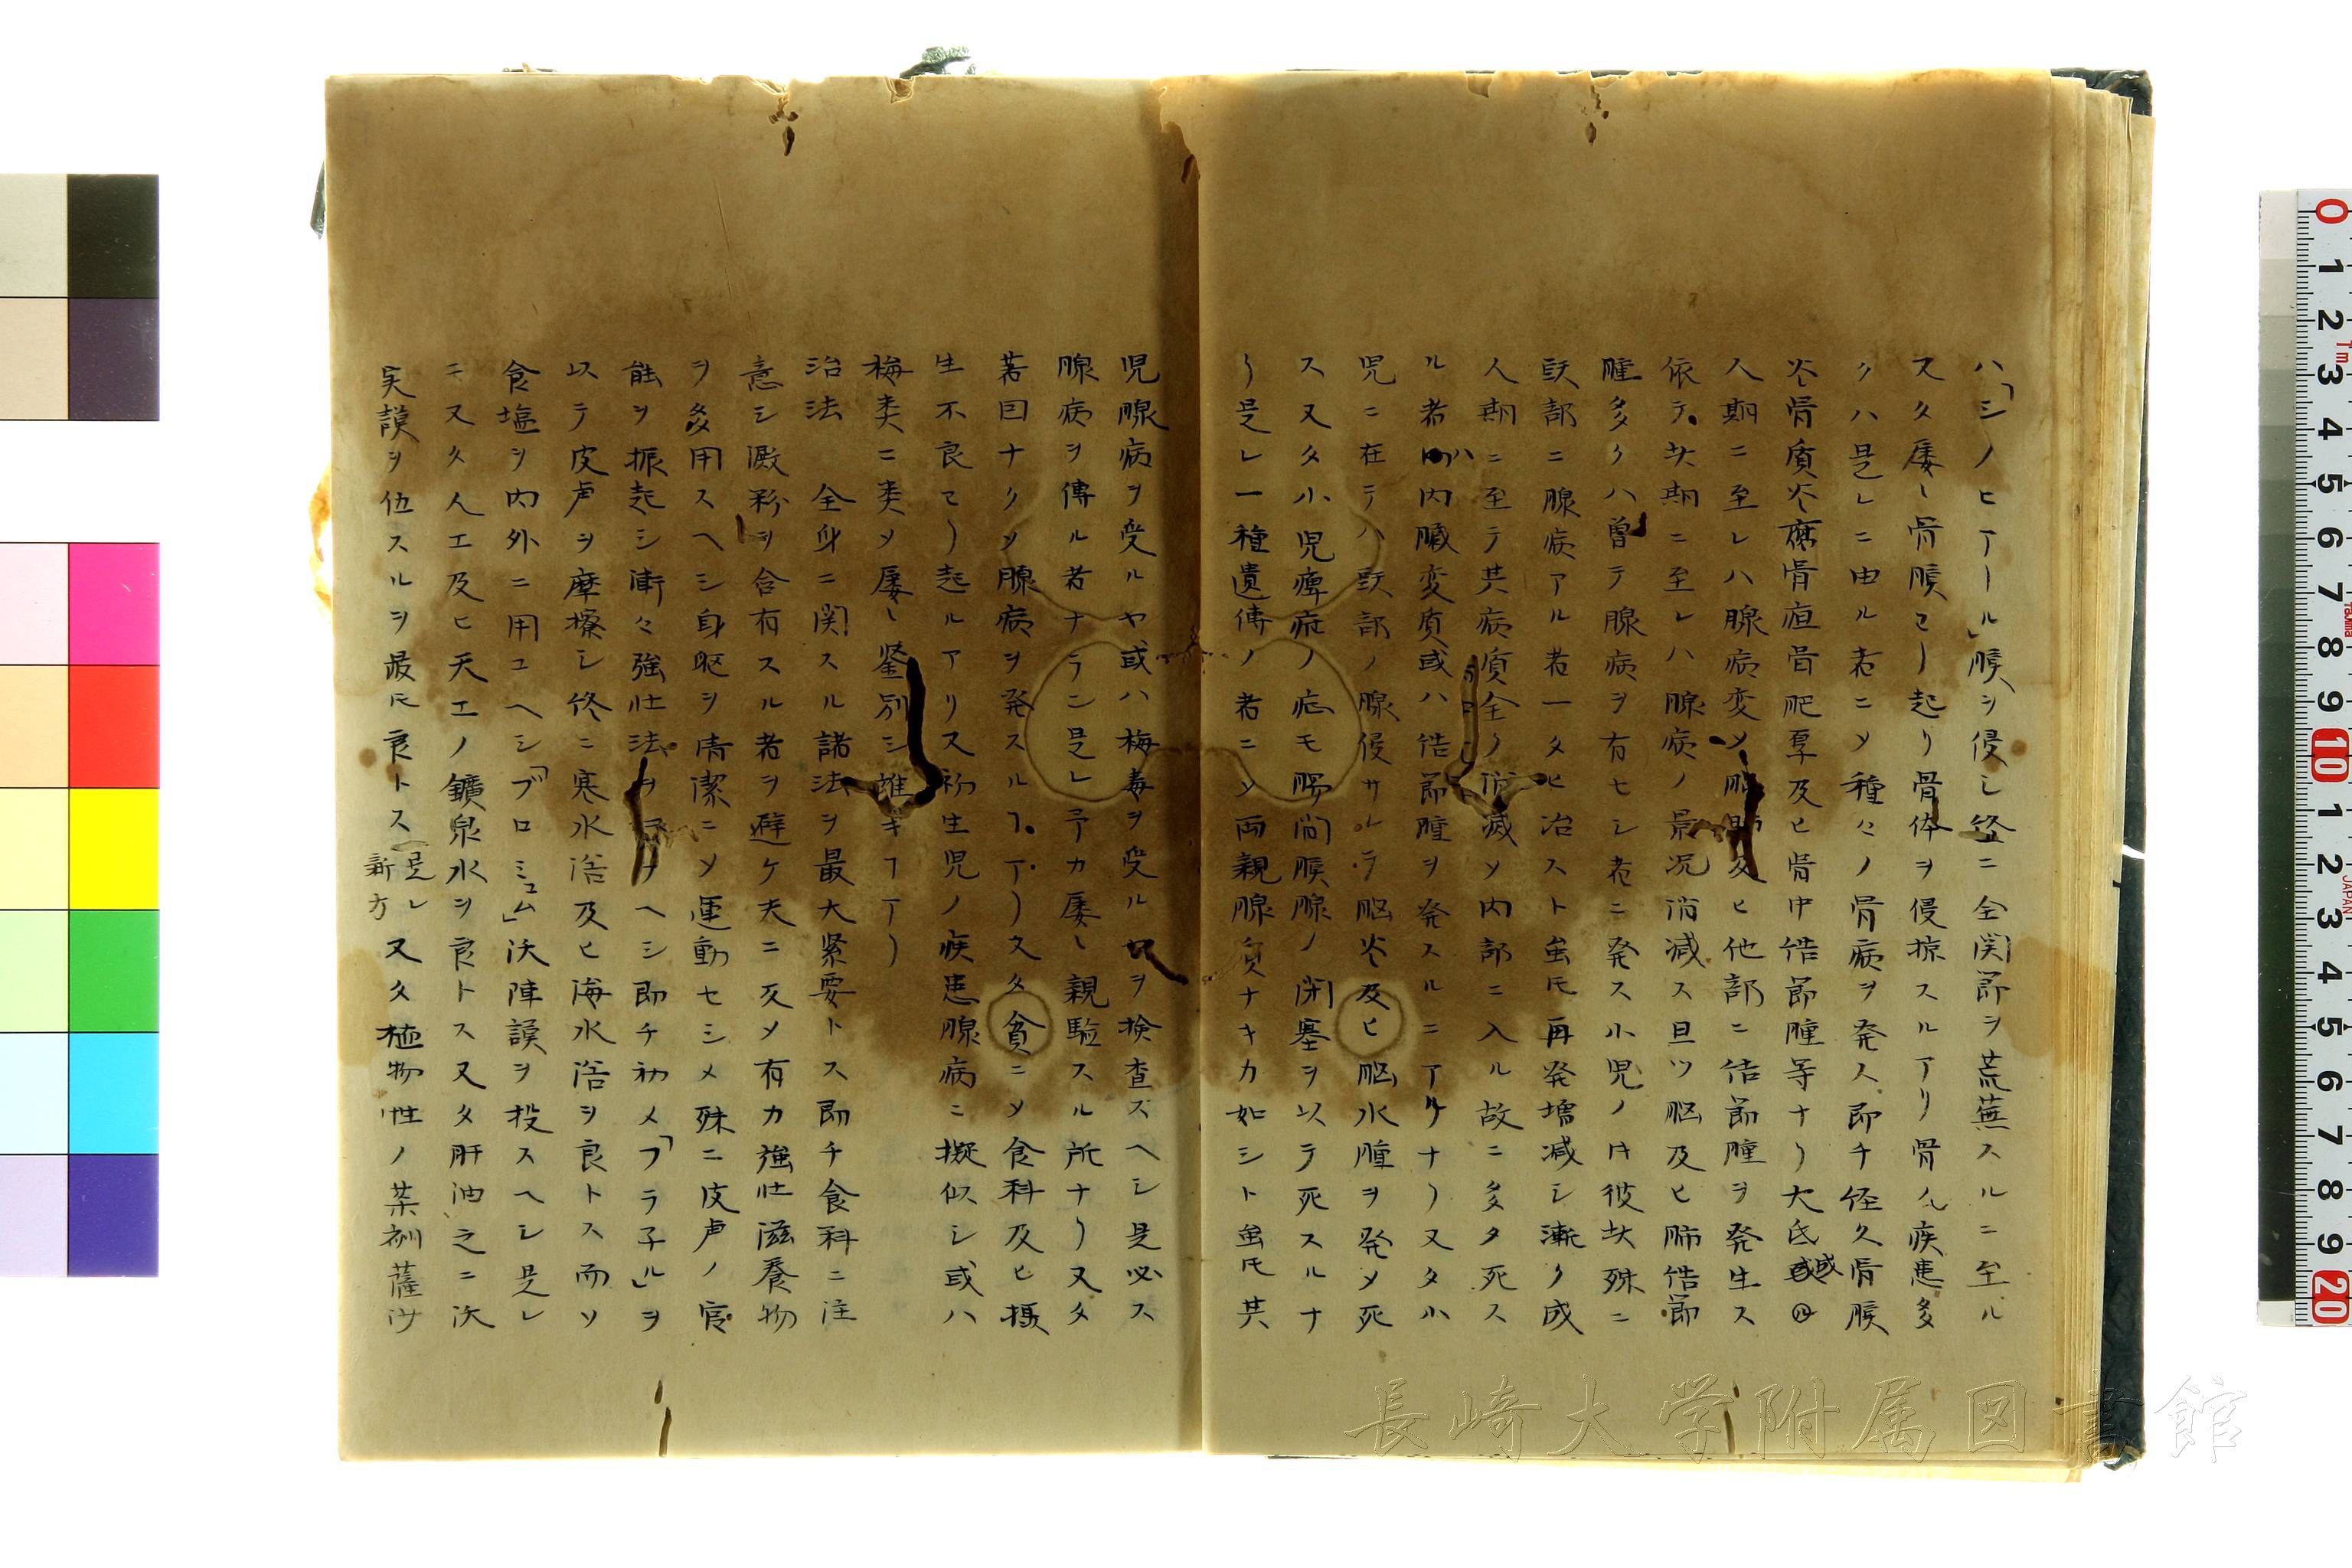 ハ「シノヒアール」膜ヲ侵シ終ニ全関節ヲ荒蕪スルニ至ル
又タ屡〻骨膜ヨリ起リ骨体ヲ侵掠スルアリ骨ノ疾患多
クハ是レニ由ル者ニ〆種々ノ骨病ヲ発ス即チ経久骨膜
炎骨質炎腐骨疽骨肥厚及ヒ骨中結節腫等ナリ大氐或
人期ニ至レハ腺病変〆 及ヒ他部ニ結節腫ヲ発生ス
依テ此期ニ至レハ腺病ノ景况消减ス且ツ脳及ヒ肺結節
腫多クハ曽テ腺病ヲ有セシ者ニ発ス小児ノ 彼 殊ニ
頸部ニ腺病アル者一タヒ治スト虽𪜈再発増减シ漸ク成
人期ニ至テ其病質全ク消滅〆内部ニ入ル故ニ多タ死ス
ル者ハ内臓変質或ハ結節腫ヲ発スルニアルナリ又タ小
児ニ在テハ頸部ノ腺侵サレテ脳炎及ヒ脳水腫ヲ発〆死
ス又タ小児痺症ノ症モ腸間膜腺ノ閉塞ヲ以テ死スルナ
リ是レ一種遺傳ノ者ニ〆両親腺質ナキカ如シト虽𪜈其
児腺病ヲ受ルヤ或ハ梅毒ヲ受ル ヲ検査スヘシ是必ス
腺病ヲ傳ル者ナラン是レ予カ屡〻親驗スル所ナリ又タ
若因ナク〆腺病ヲ発スルヿアリ又タ貧ニ〆食料及ヒ摂
生不良ヨリ起ルアリ又初生児ノ疾患腺病ニ擬似シ或ハ
梅类ニ类〆屡〻鑒別シ難キヿアリ
治法 全身ニ関スル諸法ヲ最大緊要トス即チ食料ニ注
意シ澱粉ヲ含有スル者ヲ避ケ夫ニ反〆有力強壮滋養物
ヲ多用スヘシ身躯ヲ清潔ニ〆運動セシメ殊ニ皮膚ノ官
能ヲ振起シ漸々強壮法ヲ行ナヘシ即チ初メ「フラ子ル」ヲ
以テ皮膚ヲ摩擦シ終ニ寒水浴及ヒ海水浴ヲ良トス而ソ
食塩ヲ内外ニ用ユヘシ「ブロミユム」沃陣謨ヲ投スヘシ是レ
ニ又タ人工及ヒ天工ノ鑛泉水ヲ良トス又タ肝油之ニ沃
実謨ヲ伍スルヲ最𪜈良トス(是レ新方 又タ植物性ノ茱 薩沙